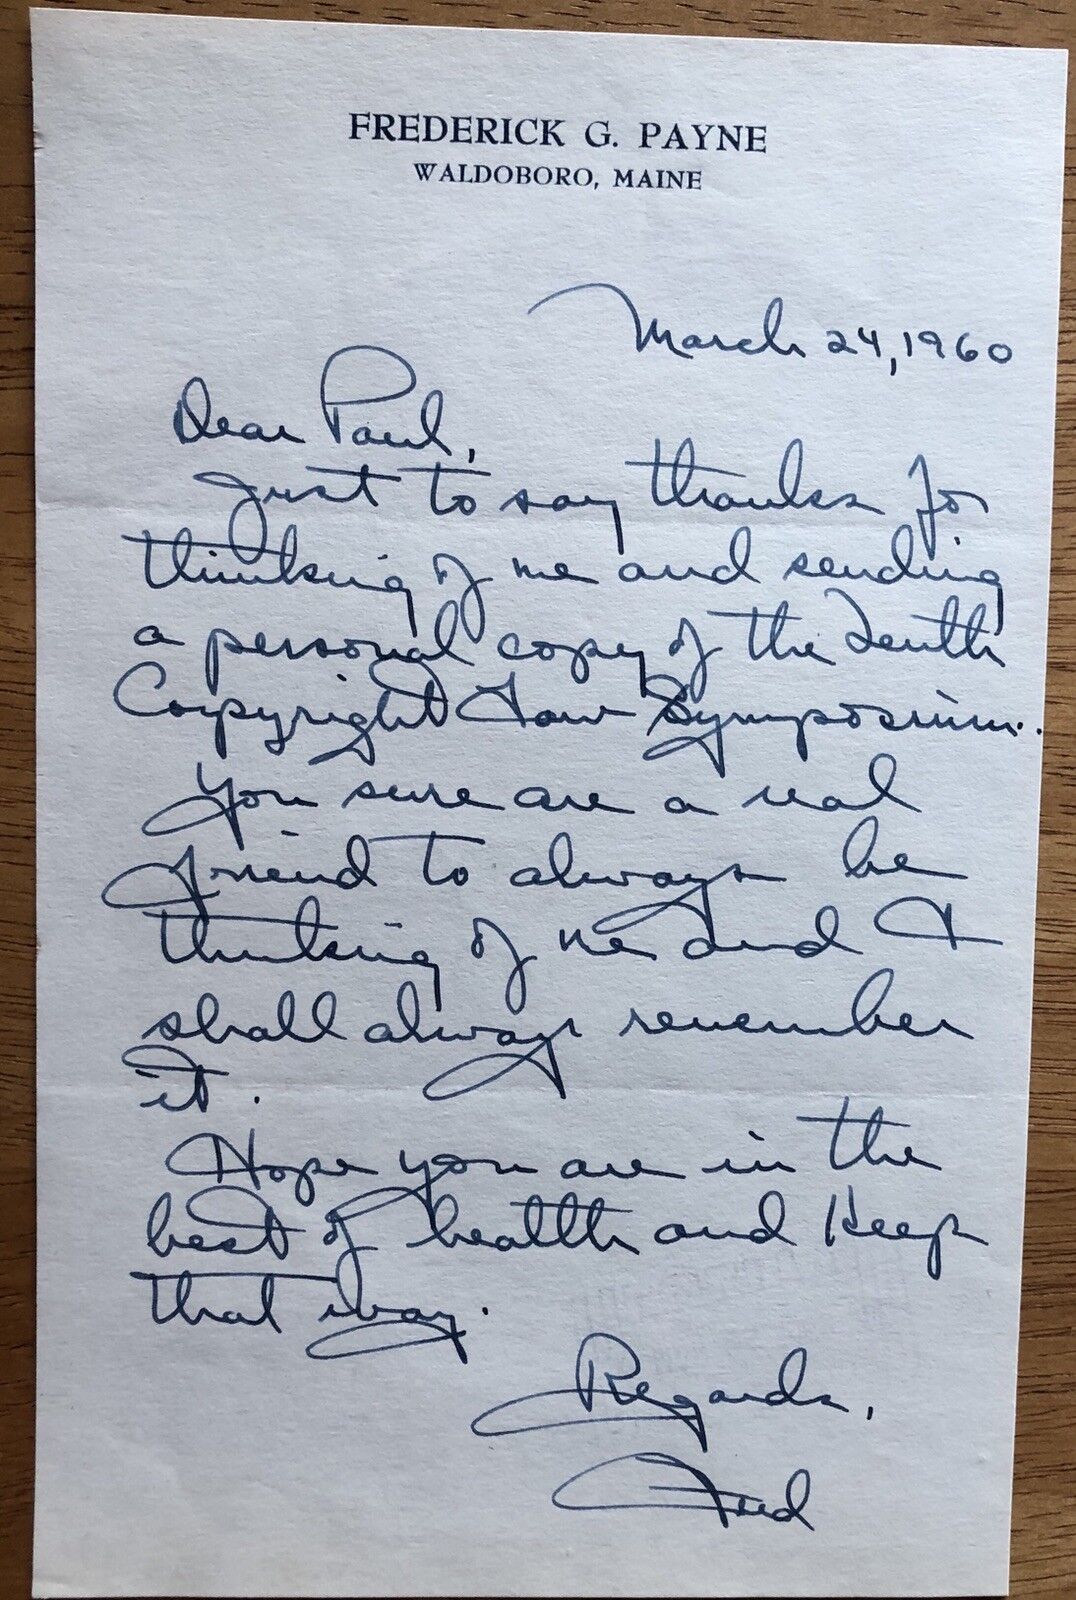 FREDERICK G. PAYNE
WALDOBORO, MAINE
March 24, 1960
Dear Paul,
Just to say thanks for
thinking of me and sending
a personal copy of the Tenth
Copyright Law Symposium.
You sure are a real
friend to always be
thinking of me and I
shall always remember
it.
Hope you are in the
best of health and keep
that way.
Regards,
Fred